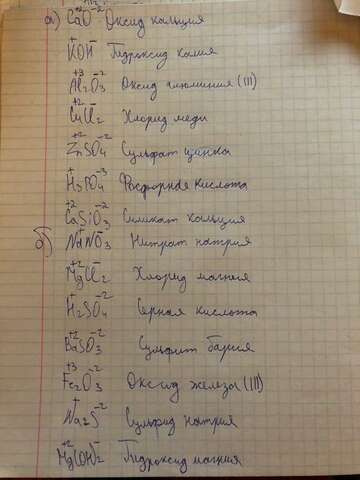 а) CaO Оксид кальция
KOH Гидроксид калия
Al₂O₃ Оксид алюминия (III)
CuCl₂ Хлорид меди
ZnSO₄ Сульфат цинка
H₃PO₄ Фосфорная кислота
CaSiO₃ Силикат кальция
б) NaNO₃ Нитрат натрия
MgCl₂ Хлорид магния
H₂SO₄ Серная кислота
BaSO₃ Сульфит бария
Fe₂O₃ Оксид железа (III)
Na₂S Сульфид натрия
Mg(OH)₂ Гидроксид магния